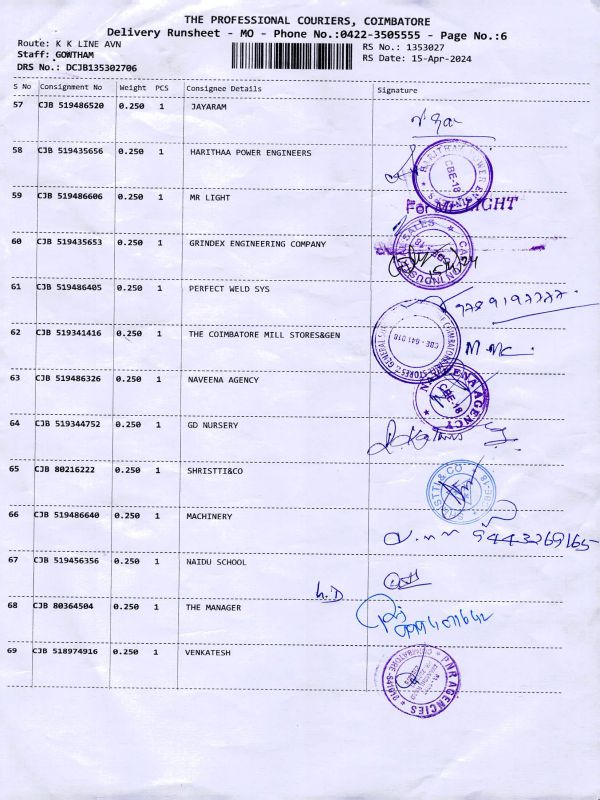 THE PROFESSIONAL COURIERS, COIMBATORE
Delivery Runsheet - MO - Phone No.:0422-3505555 - Page No.:6
Route: K K LINE AVN
RS No.: 1353027
Staff: GOWTHAM
RS Date: 15-Apr-2024
DRS No.: DCJB135302706
S No Consignment No Weight PCS Consignee Details Signature
57 CJB 519486520 0.250 1 JAYARAM
58 CJB 519435656 0.250 1 HARITHAA POWER ENGINEERS
HARITHAA POWER ENGINEERS CBE-18
59 CJB 519486606 0.250 1 MR LIGHT
For Mr LIGHT
60 CJB 519435653 0.250 1 GRINDEX ENGINEERING COMPANY
SALES
61 CJB 519486405 0.250 1 PERFECT WELD SYS
62 CJB 519341416 0.250 1 THE COIMBATORE MILL STORES&GEN
CBE - 641 018
63 CJB 519486326 0.250 1 NAVEENA AGENCY
NAVEENA AGENCY CBE-18
64 CJB 519344752 0.250 1 GD NURSERY
65 CJB 80216222 0.250 1 SHRISTTI&CO
SHRISTTI & CO CBE-18
66 CJB 519486640 0.250 1 MACHINERY
9443269165
67 CJB 519456356 0.250 1 NAIDU SCHOOL
68 CJB 80364504 0.250 1 THE MANAGER
69 CJB 518974916 0.250 1 VENKATESH
PNR AGENCIES